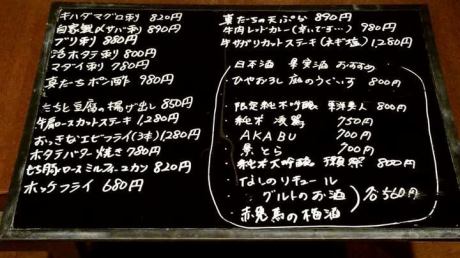 キハダマグロ刺 820円
自家製〆サバ刺 890円
ブリ刺 880円
活ホタテ刺 800円
マダイ刺 780円
真だちポン酢 980円
たちと豆腐の揚げ出し 850円
牛肩ロースカットステーキ 1,280円
おっきなエビフライ(3本) 1,280円
ホタテバター焼き 780円
もち豚ロースミルフィーユカツ 820円
ホッケフライ 680円
真だちの天ぷら 890円
牛肉レッドカレー(辛いです…) 980円
牛サガリカットステーキ(ネギ塩) 1,280円
日本酒 果実酒 おすすめ
ひやおろし 庭のうぐいす 800円
・限定純米吟醸 東洋美人 800円
・純米 凌駕 750円
・AKABU 700円
・景とら 700円
・純米大吟醸 獺祭 800円
・なしのリキュール
・グルトのお酒
・赤兎馬の梅酒
各560円